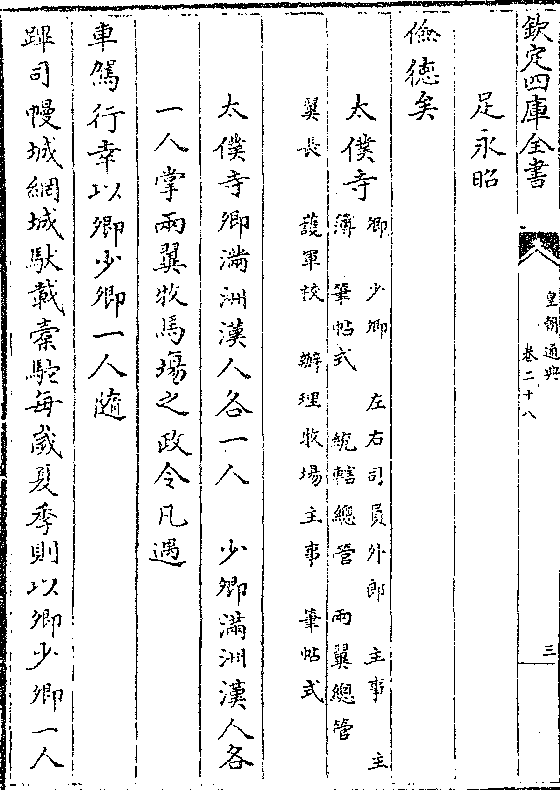 欽定四庫全書
皇朝通典
卷二十八
三
足永昭
儉德矣
太僕寺卿 少卿 左右司員外郎 主事 主
簿 筆帖式 統轄總管 兩翼總管
翼長 護軍校 辦理牧場主事 筆帖式
太僕寺卿滿洲漢人各一人 少卿滿洲漢人各
一人掌兩翼牧馬場之政令凡遇
車駕行幸以卿少卿一人隨
蹕司幔城網城駄載槖駝每歲夏季則以卿少卿一人